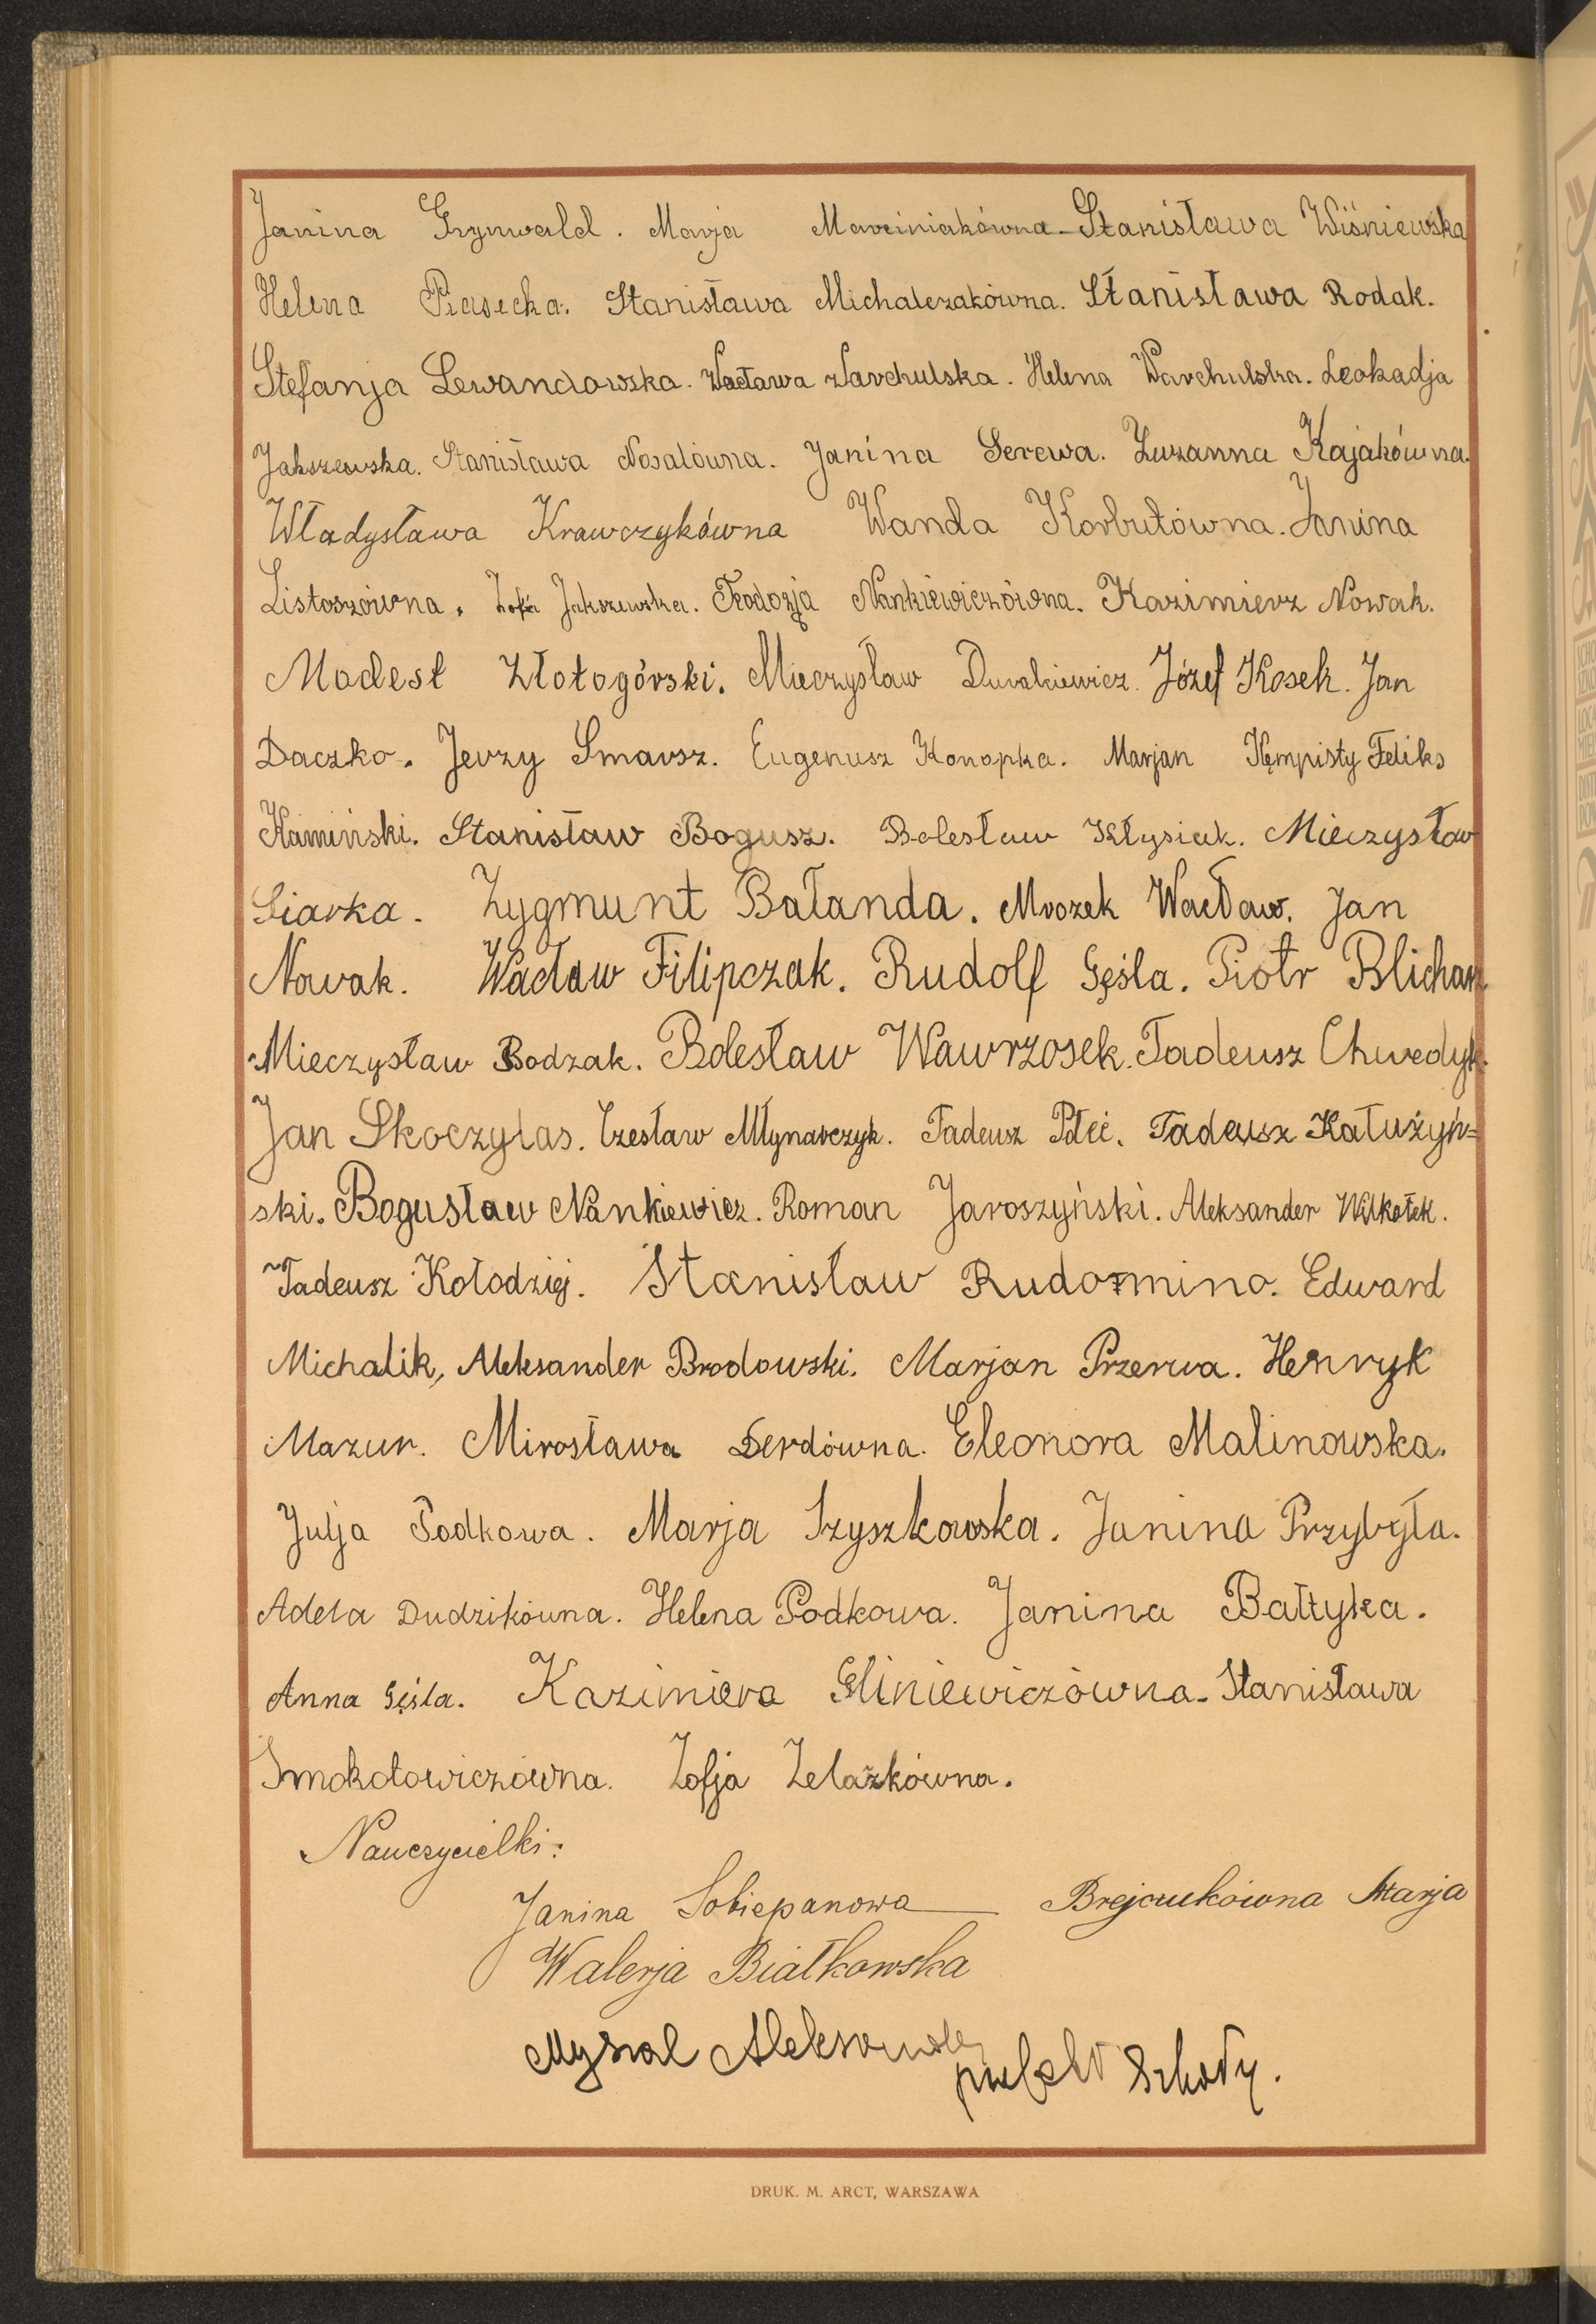 Janina Grynwald. Marja Marciniakówna. Stanisława Wiśniewska
Helena Piasecka. Stanisława Michalczakówna. Stanisława Rodak.
Stefanja Lewandowska. Wacława Warchulska. Helena Warchulska. Leokadja
Jakszewska. Stanisława Nosalówna. Janina Serewa. Zuzanna Kajakówna.
Władysława Krawczykówna Wanda Korbutówna. Janina
Listoszówna. Zofja Jakszewska. Teodozja Nankiewiczówna. Kazimierz Nowak.
Modest Złotogórski. Mieczysław Durakiewicz. Józef Kosek. Jan
Daczko. Jerzy Smarsz. Eugenusz Konopka. Marjan Kempisty Feliks
Kamiński. Stanisław Bogusz. Bolesław Kłysiak. Mieczysław
Siarka. Zygmunt Bałanda. Mrozek Wacław. Jan
Nowak. Wacław Filipczak. Rudolf Gęśla. Piotr Blicharz
Mieczysław Bodzak. Bolesław Wawrzosek. Tadeusz Chwedyk.
Jan Skoczylas. Czesław Młynarczyk. Tadeusz Płeć. Tadeusz Kałużyń=
ski. Bogusław Nankiewicz. Roman Jaroszyński. Aleksander Wilkołek.
Tadeusz Kołodziej. Stanisław Rudormino. Edward
Michalik, Aleksander Brodowski. Marjan Przerwa. Henryk
Mazur. Mirosława Derdówna. Eleonora Malinowska.
Julja Podkowa. Marja Szyszkowska. Janina Przybyła.
Adela Dudzikówna. Helena Podkowa. Janina Bałtyka.
Anna Gęśla. Kazimiera Gliniewiczówna. Stanisława
Smokołowiczówna. Zofja Żelazkówna.
Nauczycielki:
Janina Sobiepanowa Brejczukówna Marja
Walerja Białkowska
Mysial Aleksander
prefekt Szkoły.
DRUK. M. ARCT, WARSZAWA